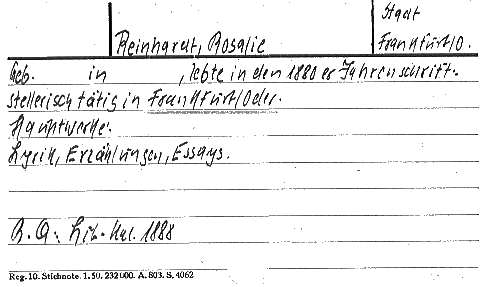 Stadt
Reinhardt, Rosalie
Frankfurt/O.
Geb. in , lebte in den 1880er Jahren schrift-
stellerisch tätig in Frankfurt/Oder.
Hauptwerke:
Lyrik, Erzählungen, Essays.
B. Q.: Lit. Kal. 1888
Reg. 10. Stichnote. 1. 50. 232000. A. 803. S. 4062